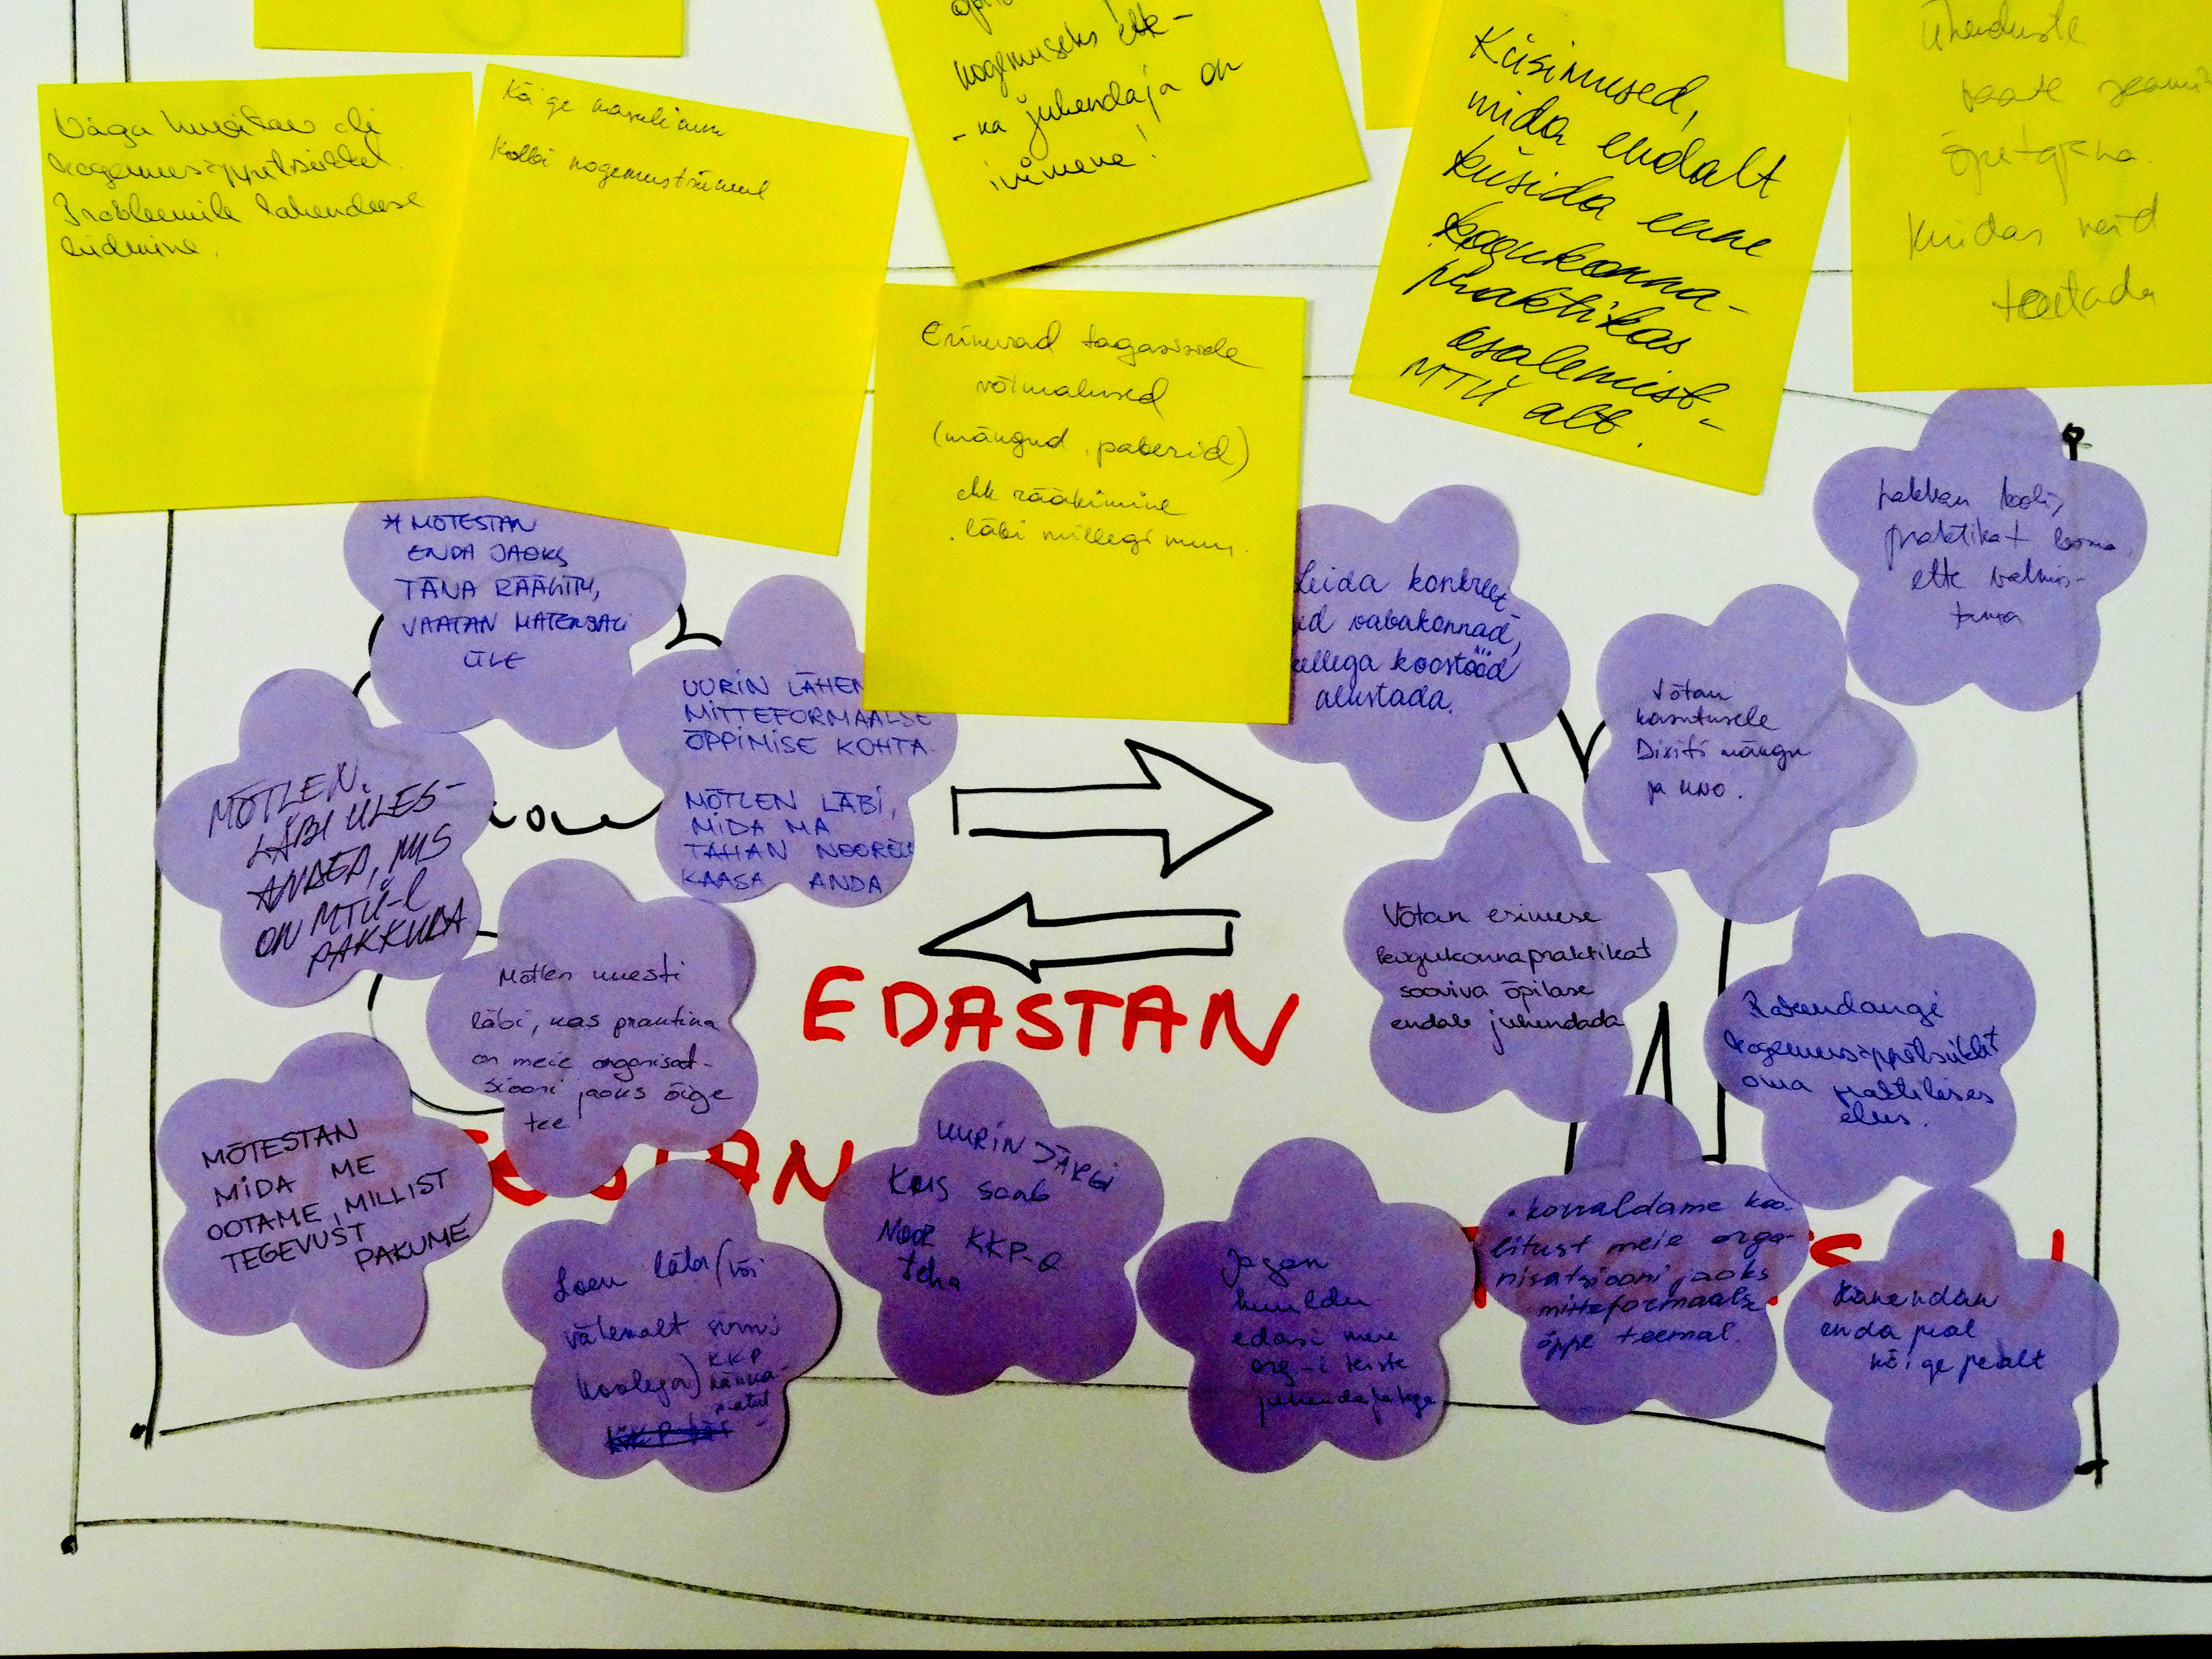 Väga huvitav oli
kogemusõppetsükkel.
Probleemile lahenduse
leidmine.
Kõige kasulikum
Kolbi kogemustsükkel
kogemuseks ette-
-ka juhendaja on
inimene!
Küsimused,
mida endalt
küsida enne
kogukonna-
praktikas
osalemist-
MTÜ alt.
Ühenduste
õpetajana.
Kuidas neid
toetada
Erinevad tagasiside
võimalused
(mängud, paberid)
ehk rääkimine
läbi millegi muu.
* MÕTESTAN
ENDA JAOKS
TÄNA RÄÄGITU,
VAATAN MATERJALI
ÜLE
UURIN LÄHE
MITTEFORMAALSE
ÕPPIMISE KOHTA.
MÕTLEN LÄBI,
MIDA MA
TAHAN NOORELE
KAASA ANDA
MÕTLEN
LÄBI ÜLES-
ANDED, MIS
ON MTÜ-L
PAKKUDA
Mõtlen uuesti
läbi, kas praktika
on meie organisat-
siooni jaoks õige
tee
MÕTESTAN
MIDA ME
OOTAME, MILLIST
TEGEVUST
PAKUME
Loen läbi (või
vähemalt sirvin
koolega) KKP
UURIN JÄRGI
KUS saab
NOOR KKP-d
teha
Jagan
kuuldu
edasi meie
org-i teiste
juhendajatega
Leida konkreet-
ed vabakonnad,
kellega koostööd
alustada.
Võtan
kasutusele
Dixiti mängu
ja UNO.
hakkan kooli,
praktikat
ette valmis-
tama
Võtan esimese
kogukonnapraktikat
sooviva õpilase
endale juhendada
Rakendangi
kogemusõppetsüklit
oma praktilises
elus.
• korraldame koo-
litust meie orga-
nisatsiooni jaoks
mitteformaalse
õppe teemal.
Rakendan
enda peal
kõigepealt
EDASTAN